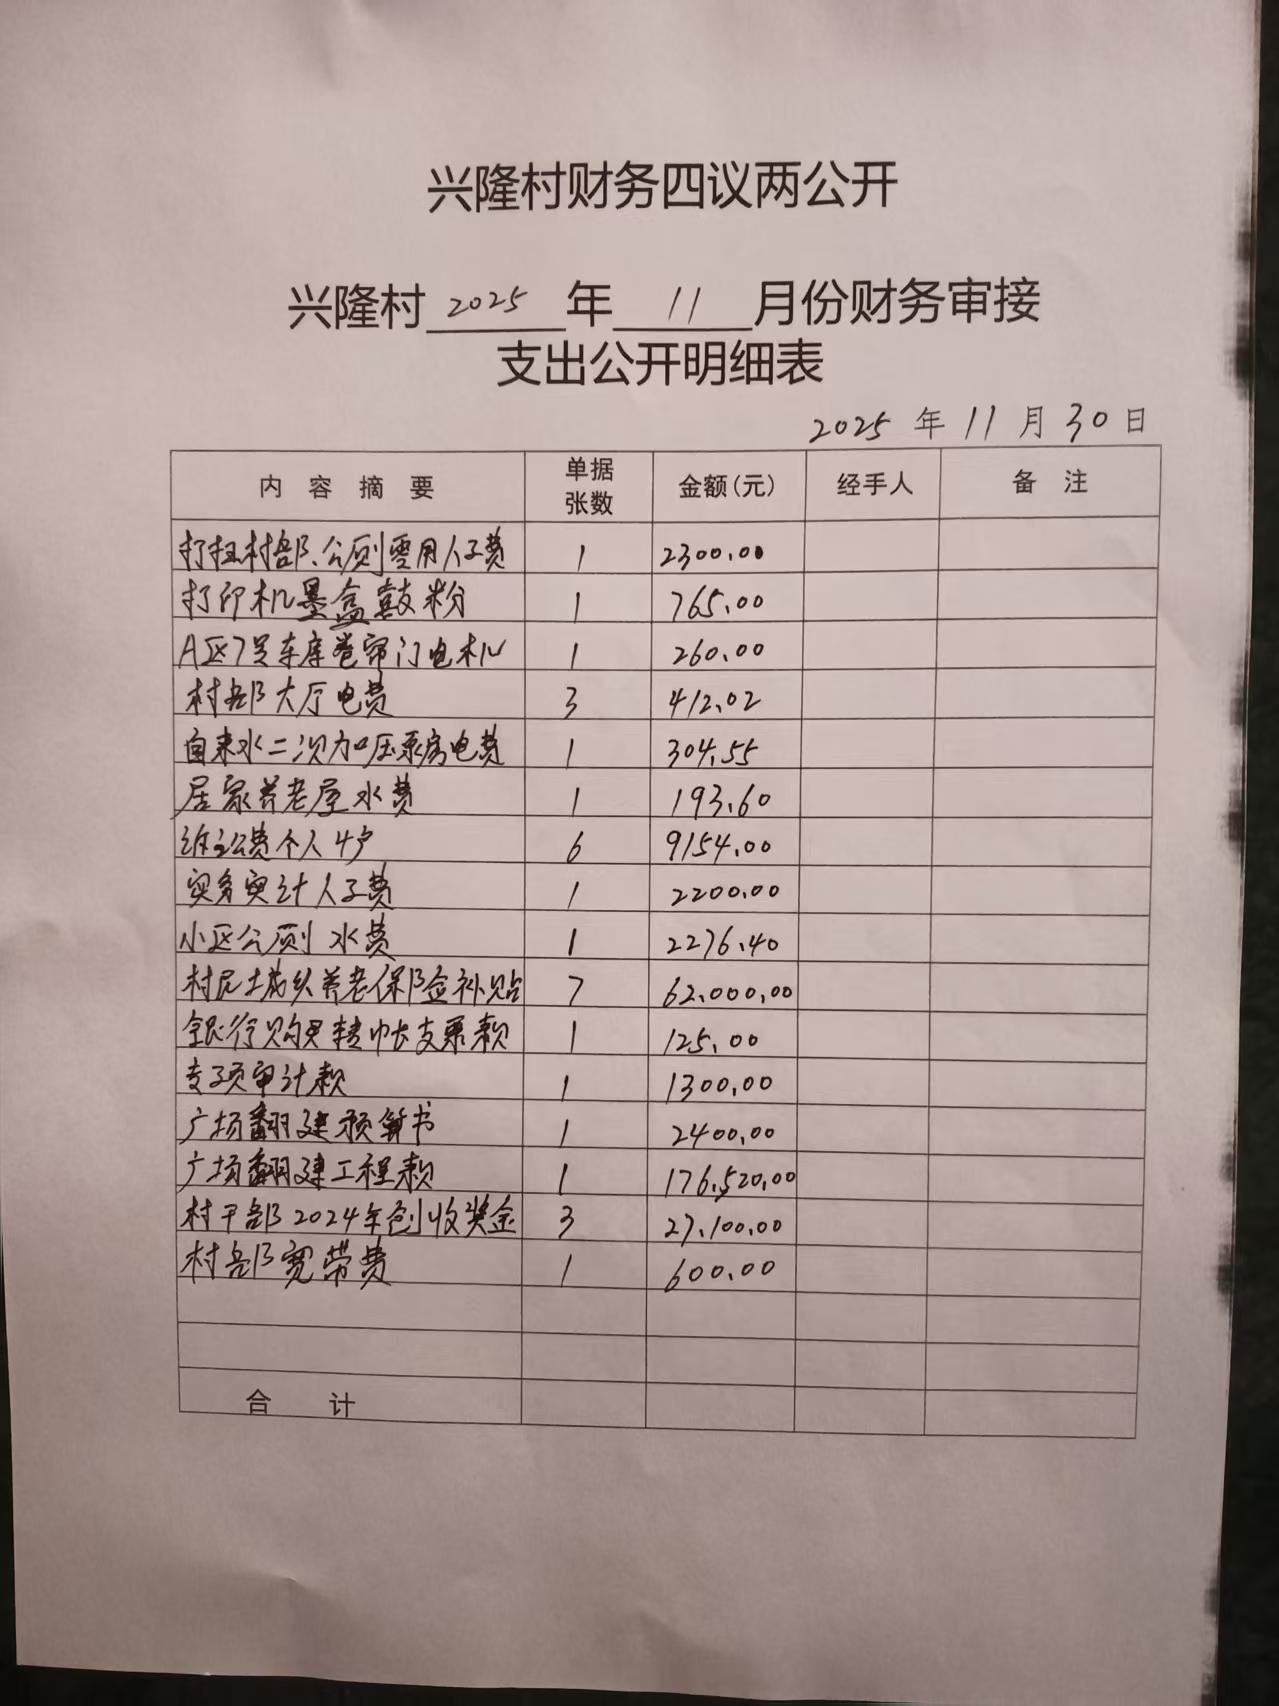 兴隆村财务四议两公开
兴隆村 2025 年 11 月份财务审接
支出公开明细表
2025 年 11 月 30 日
内 容 摘 要 单据张数 金额(元) 经手人 备 注
打扫村部、公厕雇用人工费 1 2300.00
打印机墨盒鼓粉 1 765.00
A区7号车库卷帘门电机 1 260.00
村部大厅电费 3 412.02
自来水二次加压泵房电费 1 304.55
居家养老屋水费 1 193.60
费个人4户 6 9154.00
人工费 1 2200.00
小区公厕 水费 1 2276.40
村民城乡养老保险金补贴 7 62.000.00
银行购买转帐支票款 1 125.00
专项审计款 1 1300.00
广场翻建预算书 1 2400.00
广场翻建工程款 1 176.520.00
村干部2024年创收奖金 3 27.100.00
村部宽带费 1 600.00
合 计